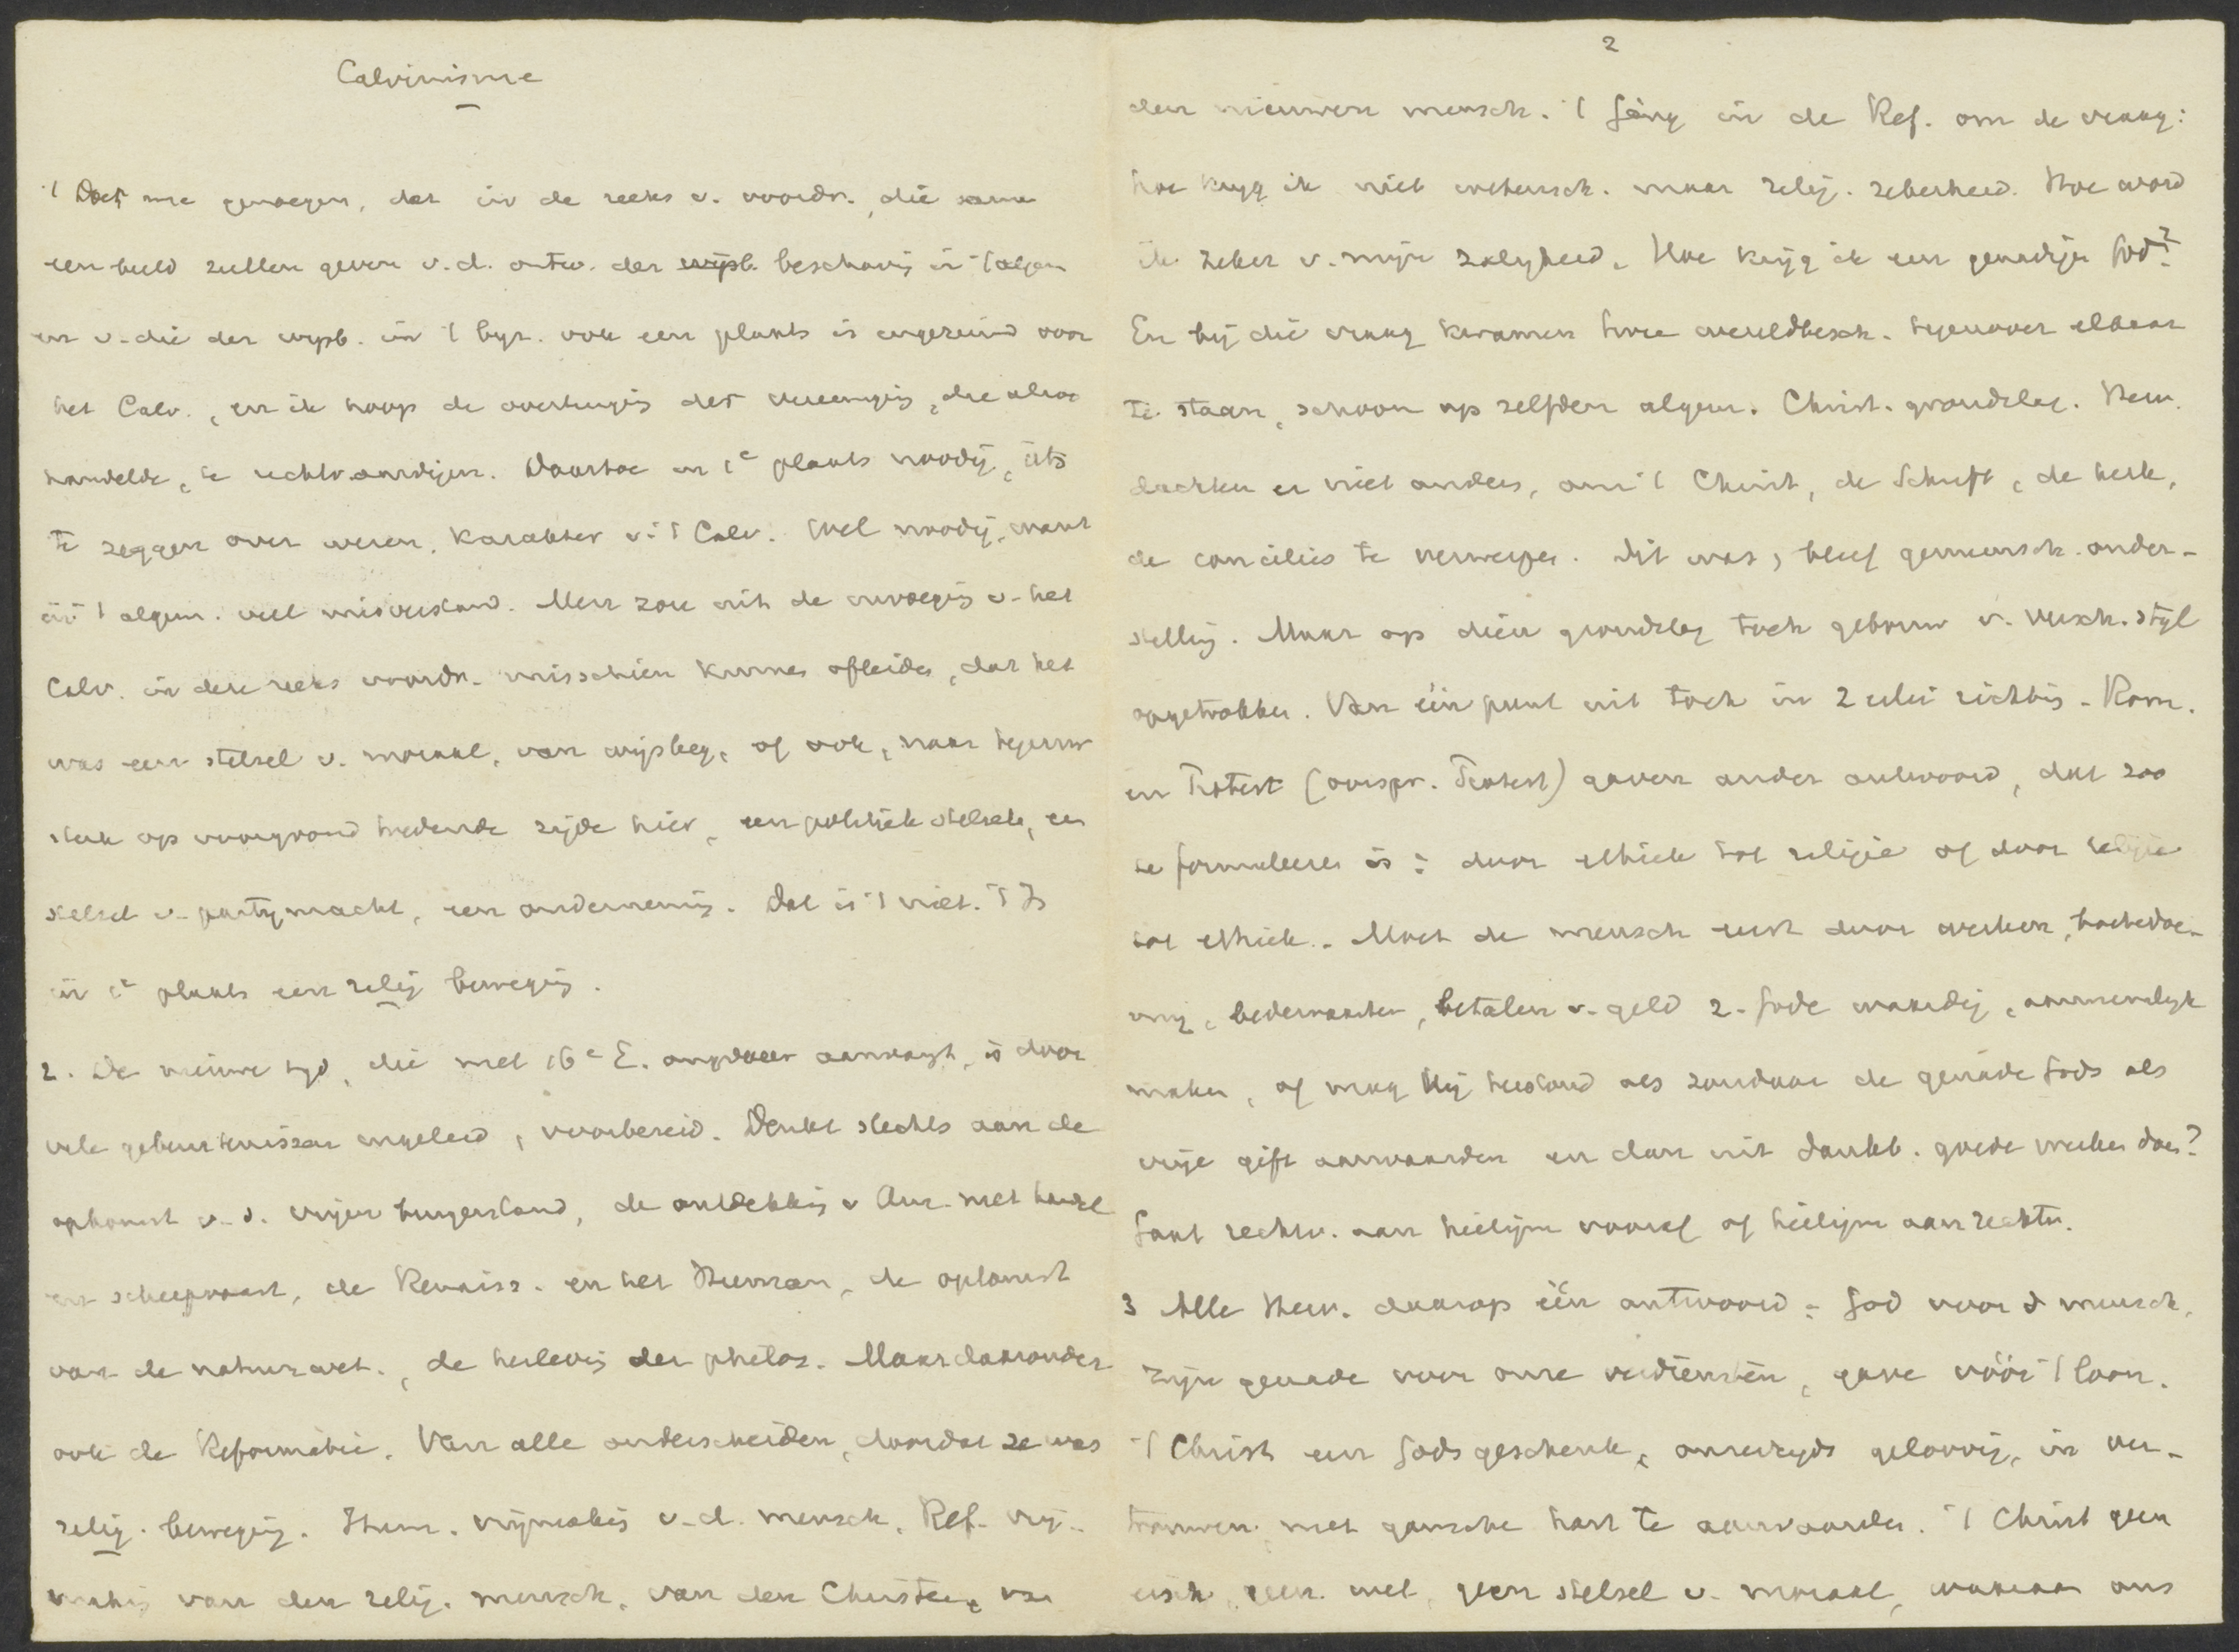 Calvinisme
't Doet me genoegen, dat in de reeks v. voordr., die samen
een beeld zullen geven v.d. ontw. der wijsb. beschavig in 't algem
en v. die der wijsb. in 't byz. ook een plaats is ingeruimd voor
het Calv., en ik hoop de overtuigig der vereenigig, die alzoo
handelde, te rechtvaardigen. Daartoe in 1e plaats noodig, iets
te zeggen over wezen, karakter v. 't Calv. Wel noodig, want
in 't algem. veel misverstand. Men zou uit de invoegig v. het
Calv. in deze reeks voordr. misschien kunnen afleiden, dat het
was een stelsel v. moraal, van wijsbeg., of ook, naar tegenw
sterk op voorgrond tredende zijde hier, een politiek stelsel, een
stelsel v. partymacht, een onderneming. Dat is 't niet. 't Is
in 1e plaats een relig beweging.
2. De nieuwe tyd, die met 16e E. ongeveer aanvangt, is door
vele gebeurtenissen ingeleid, voorbereid. Denkt slechts aan de
opkomst v. d. vrijen burgerstand, de ontdekkig v Am. met handel
en scheepvaart, de Renaiss. en het Human, de opkomst
van de natuurwet., de herlevig der philos. Maar daaronder
ook de Reformatie. Van alle onderscheiden, doordat ze was
relig. beweging. Hum. vrijmakig v.d. mensch, Ref. vrij-
makig van den relig. mensch, van den Christen, van
2
den nieuwen mensch. 't Ging in de Ref. om de vraag:
hoe kryg ik niet wetensch. maar relig. zekerheid. Hoe word
ik zeker v. mijn zaligheid. Hoe krijg ik een genadigen God?
En bij die vraag kwamen twee wereldbesch. tegenover elkaar
te staan, schoon op zelfden algem. Christ. grondslag. Herv.
dachten er niet anders, om 't Christ, de Schrift, de kerk,
de concilies te verwerpen. Dit was, bleef gemeensch. onder-
stellig. Maar op dien grondslag toch gebouw v. versch. styl
opgetrokken. Van één punt uit toch in 2 erlei richtig. Rom.
en Protest (oorspr. Protest) gaven ander antwoord, dat zoo
te formuleeren is: door ethiek tot religie of door religie
tot ethiek. Moet de mensch eerst door werken, boetedoe-
ning, bedevaarten, betalen v. geld z. Gode waardig, aannemelyk
maken, of mag hij terstond als zondaar de genade Gods als
vrije gift aanvaarden en dan uit dankb. goede werken doen?
Gaat rechtv. aan heiligm vooraf of heiligm aan rechtv.
3 Alle Herv. daarop één antwoord: God voor d mensch,
zijn genade voor onze verdiensten, gave vóór 't loon.
't Christ een Gods geschenk, onzerzyds geloovig, in ver-
trouwen, met gansche hart te aanvaarden. 't Christ geen
eisch, geen wet, geen stelsel v. moraal, waaraan ons